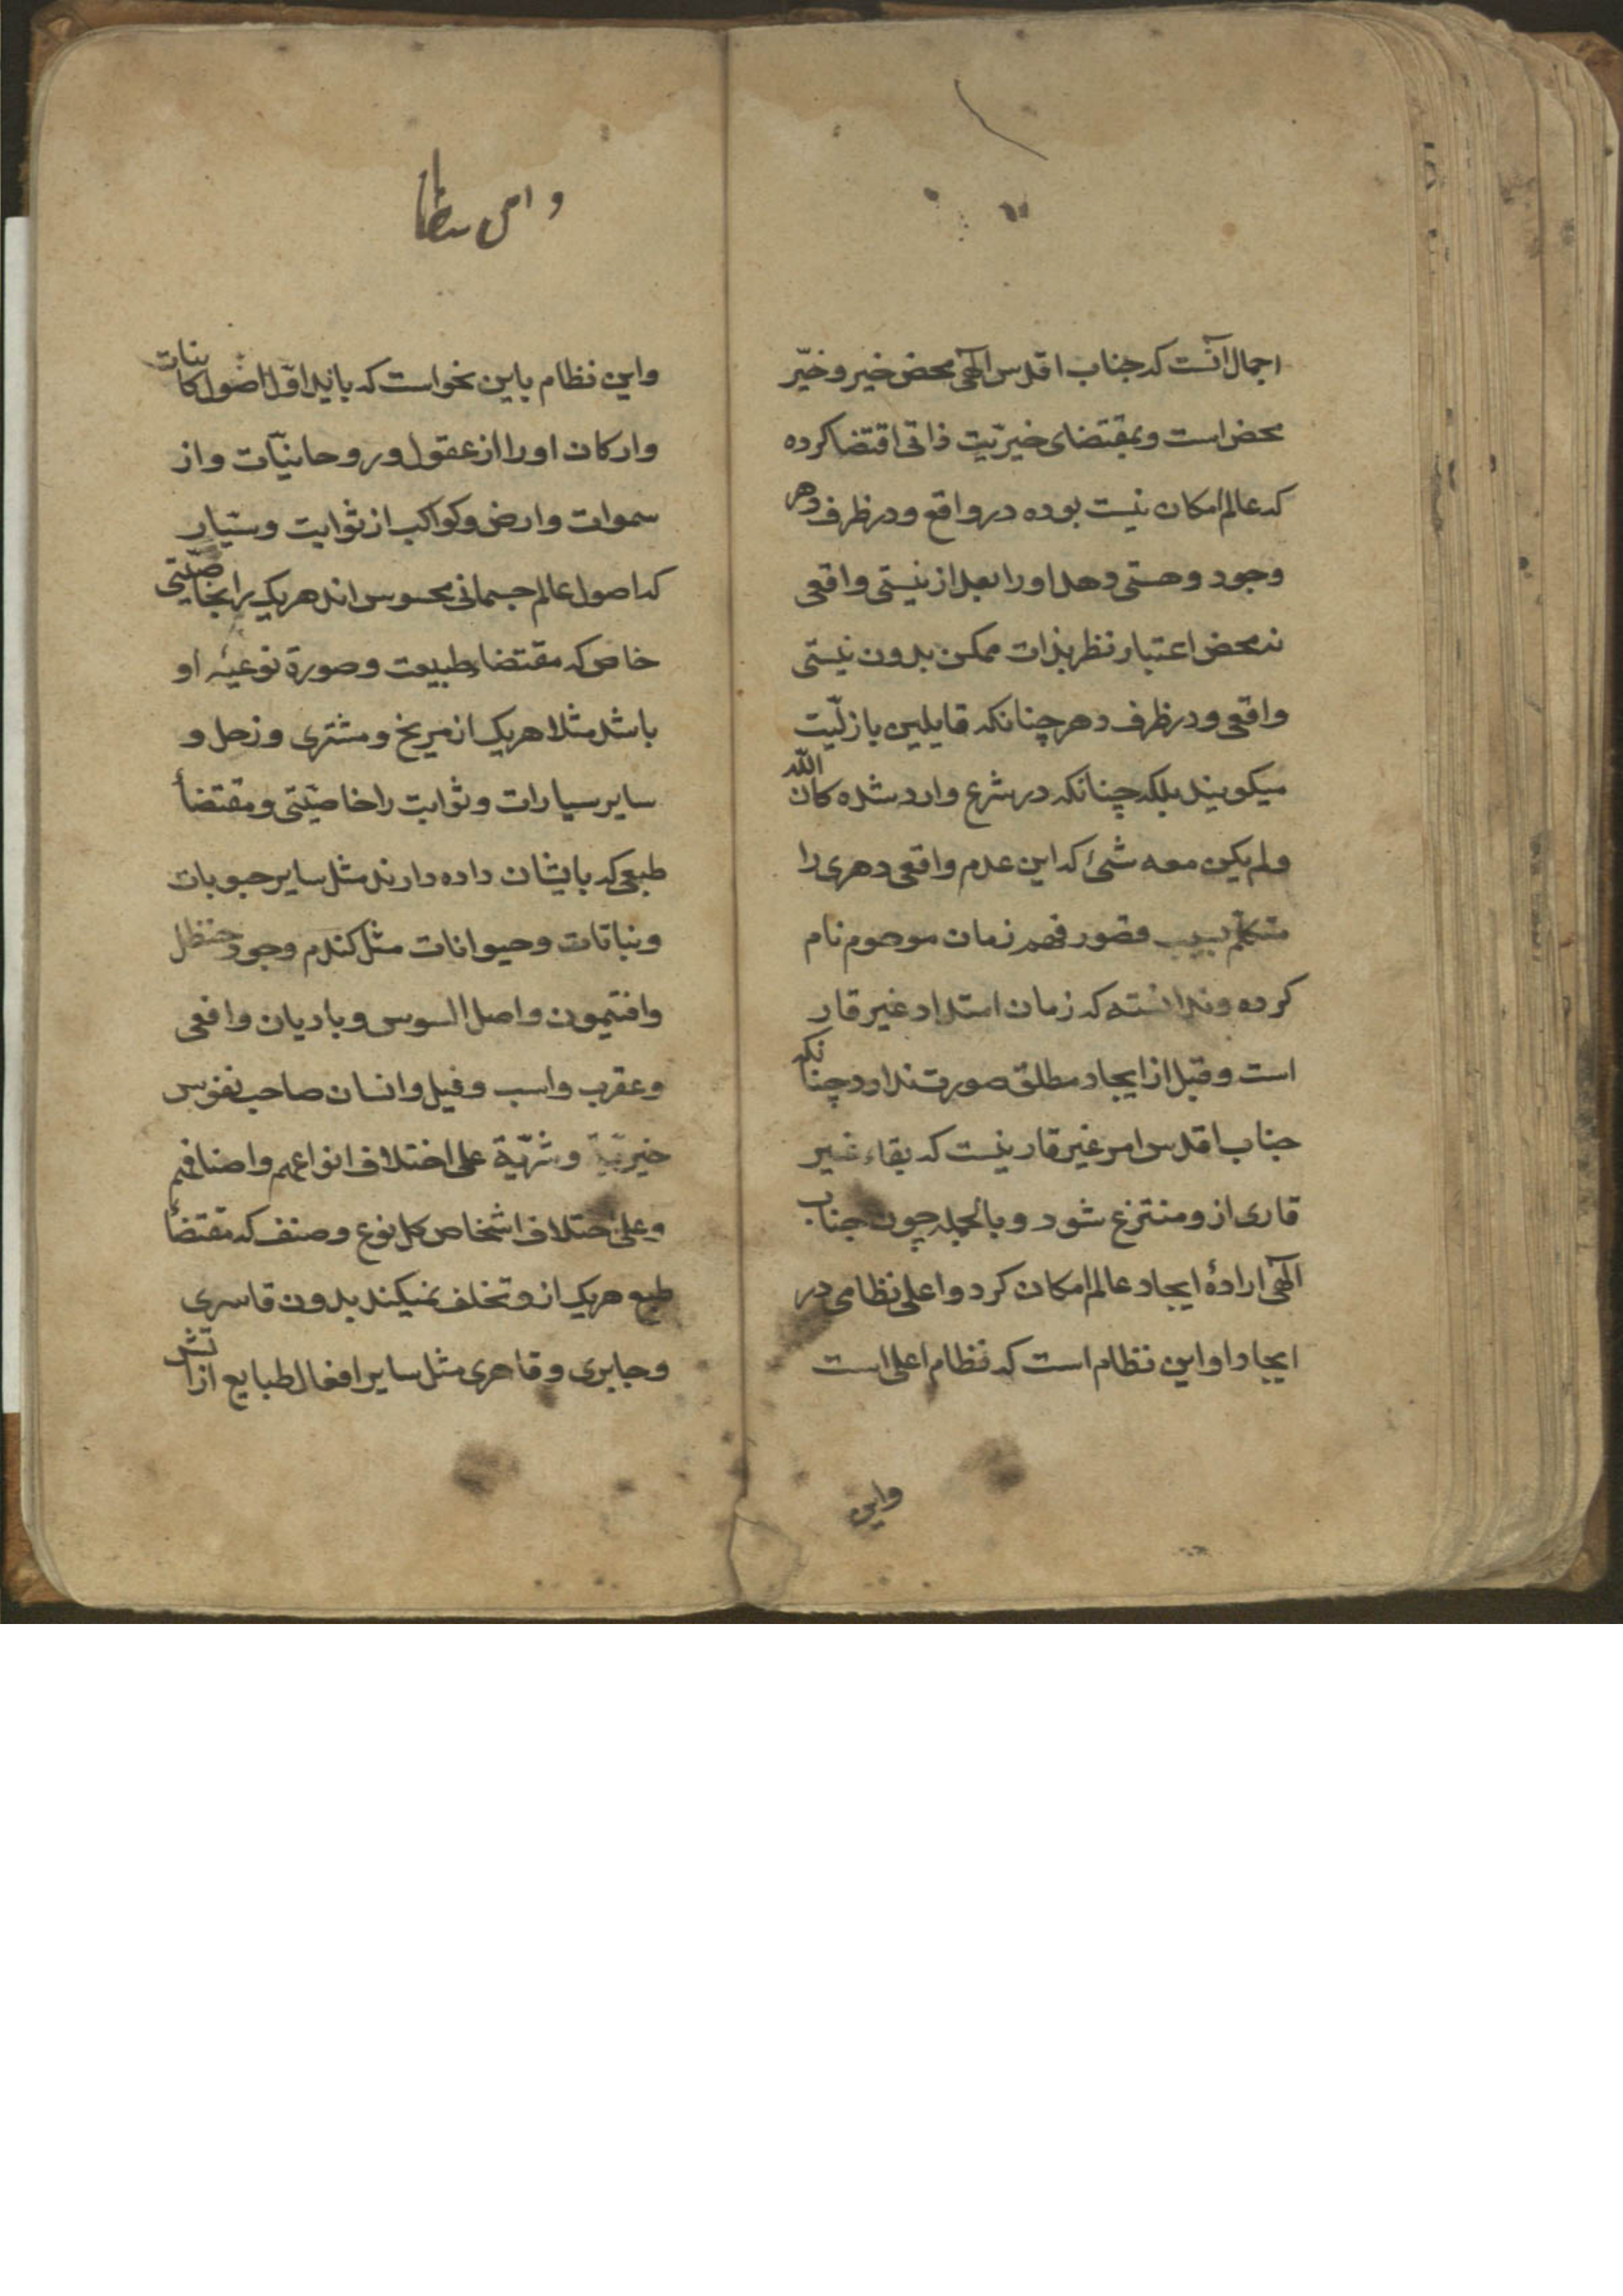 اجمال آنست که جناب اقدس الهی محض خیر و خیّر
محض است و بمقتضای خیریّت ذاتی اقتضا کرده
که عالم امکان نیست بوده در واقع و در ظرف دهر
وجود و هستی دهد او را بعد از نیستی واقعی
نه محض اعتبار نظر بذات ممکن بدون نیستی
واقعی و در ظرف دهر چنانکه قایلین بازلیّت
میکویند بلکه چنانکه در شرع وارد شده کان الله
ولم یکن معه شیٔ که این عدم واقعی دهری را
متکلم بسبب قصور فهم زمان موهوم نام
کرده و ندانسته که زمان امتداد غیر قار
است و قبل از ایجاد مطلق صورت ندارد چنانکه
جناب اقدس امر غیر قار نیست که بقاء غیر
قاری ازو منتزع شود و بالجمله چون جناب
الهی ارادهٔ ایجاد عالم امکان کرد و اعلی نظامی در
ایجاد او این نظام است که نظام اعلی است
واین
واین نظام باین نحو است که باید اوّل اصول کاینات
وارکان او را از عقول و روحانیّات و از
سموات و ارض و کواکب از ثوابت و سیّار
که اصول عالم جسمانی محسوس اند هریک را بخاصیّتی
خاص که مقتضاء طبیعت و صورة نوعیّه او
باشد مثلا هریک از مریخ و مشتری و زحل و
سایر سیارات و ثوابت را خاصیّتی و مقتضأ
طبعی که بایشان داده دارند مثل سایر حبوبات
و نباتات و حیوانات مثل کندم و جو و حنظل
وافتیمون واصل السوس و بادیان و افعی
و عقرب و اسب و فیل و انسان صاحب نفوس
خیریّة و شرّیّة علی اختلاف انواعهم و اصنافهم
و علی اختلاف اشخاص کل نوع و صنف که مقتضأ
طبع هریک ازو تخلف نمیکند بدون قاسری
و جابری و قاهری مثل سایر افعال طبایع از آتش